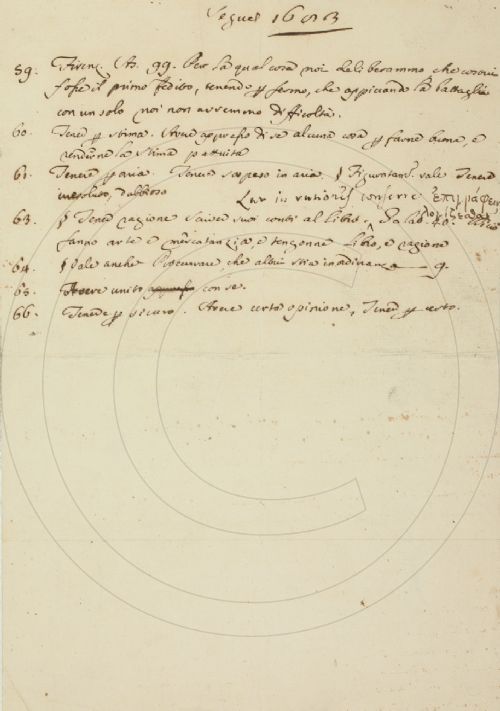 Segue 1683
59. Firenz. As. 99. Per la qual cosa noi deliberammo che costui
fosse il primo fedito, tenendo p fermo, che appiccando la battaglia
con un solo noi non avremmo difficoltà.
60. Tener p stima. Avere appresso di se alcuna cosa p farne buona, e
renderne la stima pattuita
61. Tenere p aria. Tenere sospeso in aria, p Figuratam. vale Tenere
irresoluto, dubbioso
Lat. in rationes conferre ἐπιγράφειν
63. p Tener ragione Scriver suoi conti al Libro. Da lab.
fanno arte e mercatanzia, e tengonne libro, e ragione
64. p Vale anche Procurare, che altri stia in ordinanza 9.
65. Avere unito appresso con se.
66. Tenere p sicuro. Avere certa opinione, Tener p certo.